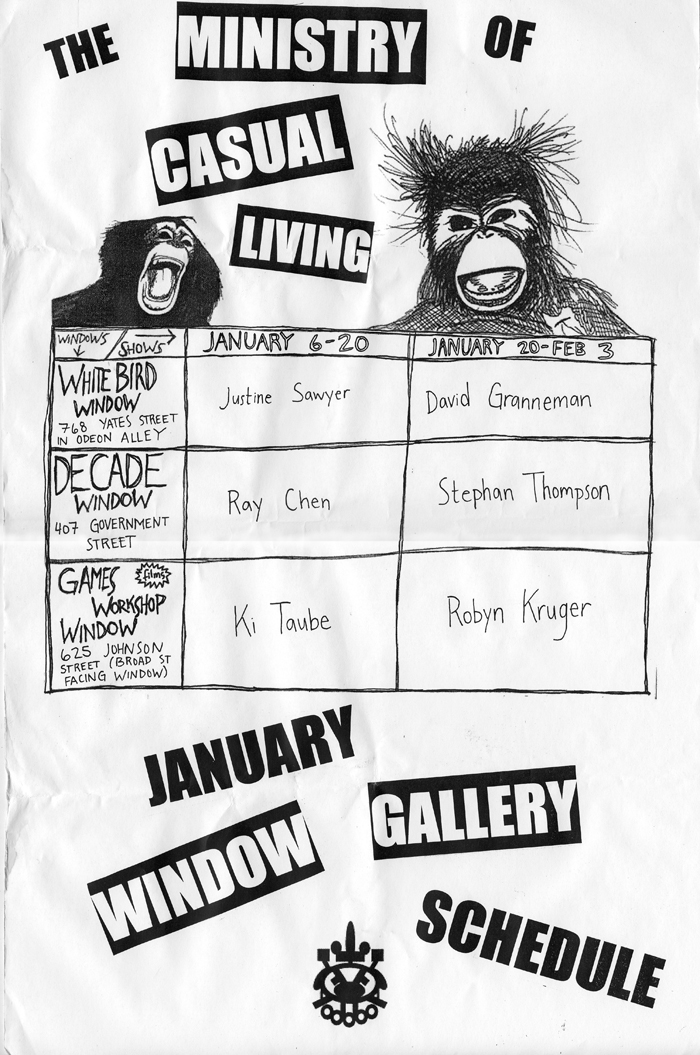 THE MINISTRY OF
CASUAL
LIVING
WINDOWS / SHOWS
JANUARY 6-20
JANUARY 20-FEB 3
WHITE BIRD
WINDOW
768 YATES STREET
IN ODEON ALLEY
Justine Sawyer
David Granneman
DECADE
WINDOW
407 GOVERNMENT
STREET
Ray Chen
Stephan Thompson
GAMES films
WORKSHOP
WINDOW
625 JOHNSON
STREET (BROAD ST
FACING WINDOW)
Ki Taube
Robyn Kruger
JANUARY
WINDOW GALLERY
SCHEDULE